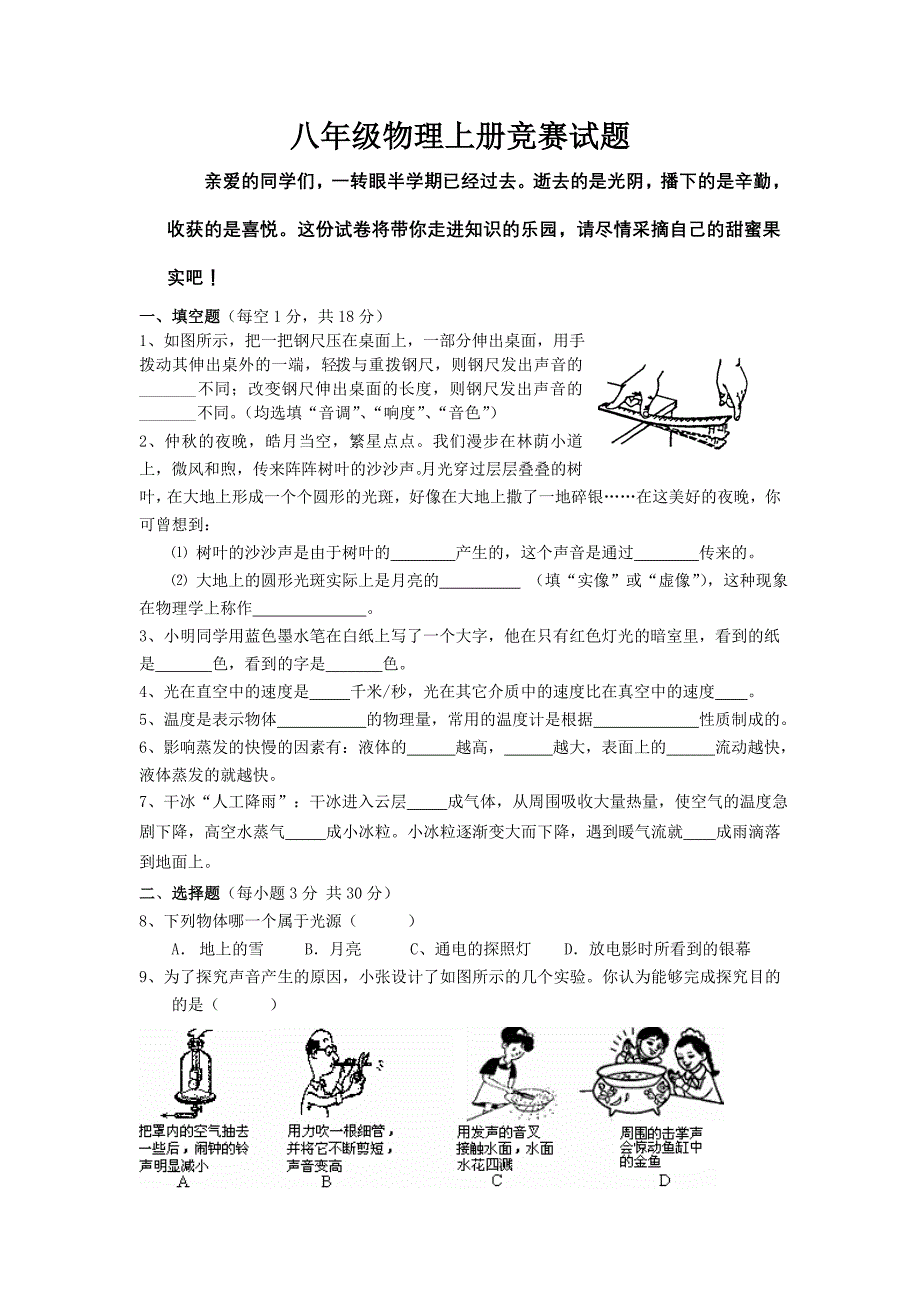 八年级物理上册竞赛试题
亲爱的同学们，一转眼半学期已经过去。逝去的是光阴，播下的是辛勤，
收获的是喜悦。这份试卷将带你走进知识的乐园，请尽情采摘自己的甜蜜果
实吧！
一、填空题（每空1分，共18分）
1、如图所示，把一把钢尺压在桌面上，一部分伸出桌面，用手
拨动其伸出桌外的一端，轻拨与重拨钢尺，则钢尺发出声音的
_______不同；改变钢尺伸出桌面的长度，则钢尺发出声音的
_______不同。（均选填“音调”、“响度”、“音色”）
2、仲秋的夜晚，皓月当空，繁星点点。我们漫步在林荫小道
上，微风和煦，传来阵阵树叶的沙沙声。月光穿过层层叠叠的树
叶，在大地上形成一个个圆形的光斑，好像在大地上撒了一地碎银……在这美好的夜晚，你
可曾想到：
⑴ 树叶的沙沙声是由于树叶的________产生的，这个声音是通过________传来的。
⑵ 大地上的圆形光斑实际上是月亮的__________ （填“实像”或“虚像”），这种现象
在物理学上称作______________。
3、小明同学用蓝色墨水笔在白纸上写了一个大字，他在只有红色灯光的暗室里，看到的纸
是_______色，看到的字是_______色。
4、光在直空中的速度是_____千米/秒，光在其它介质中的速度比在真空中的速度____。
5、温度是表示物体___________的物理量，常用的温度计是根据_____________性质制成的。
6、影响蒸发的快慢的因素有：液体的______越高，______越大，表面上的______流动越快，
液体蒸发的就越快。
7、干冰“人工降雨”：干冰进入云层_____成气体，从周围吸收大量热量，使空气的温度急
剧下降，高空水蒸气_____成小冰粒。小冰粒逐渐变大而下降，遇到暖气流就____成雨滴落
到地面上。
二、选择题（每小题3分 共30分）
8、下列物体哪一个属于光源（      ）
A． 地上的雪  B．月亮  C、通电的探照灯  D．放电影时所看到的银幕
9、为了探究声音产生的原因，小张设计了如图所示的几个实验。你认为能够完成探究目的
的是（      ）
把罩内的空气抽去
一些后，闹钟的铃
声明显减小
A
用力吹一根细管，
并将它不断剪短，
声音变高
B
用发声的音叉
接触水面，水面
水花四溅
C
周围的击掌声
会惊动鱼缸中
的金鱼
D